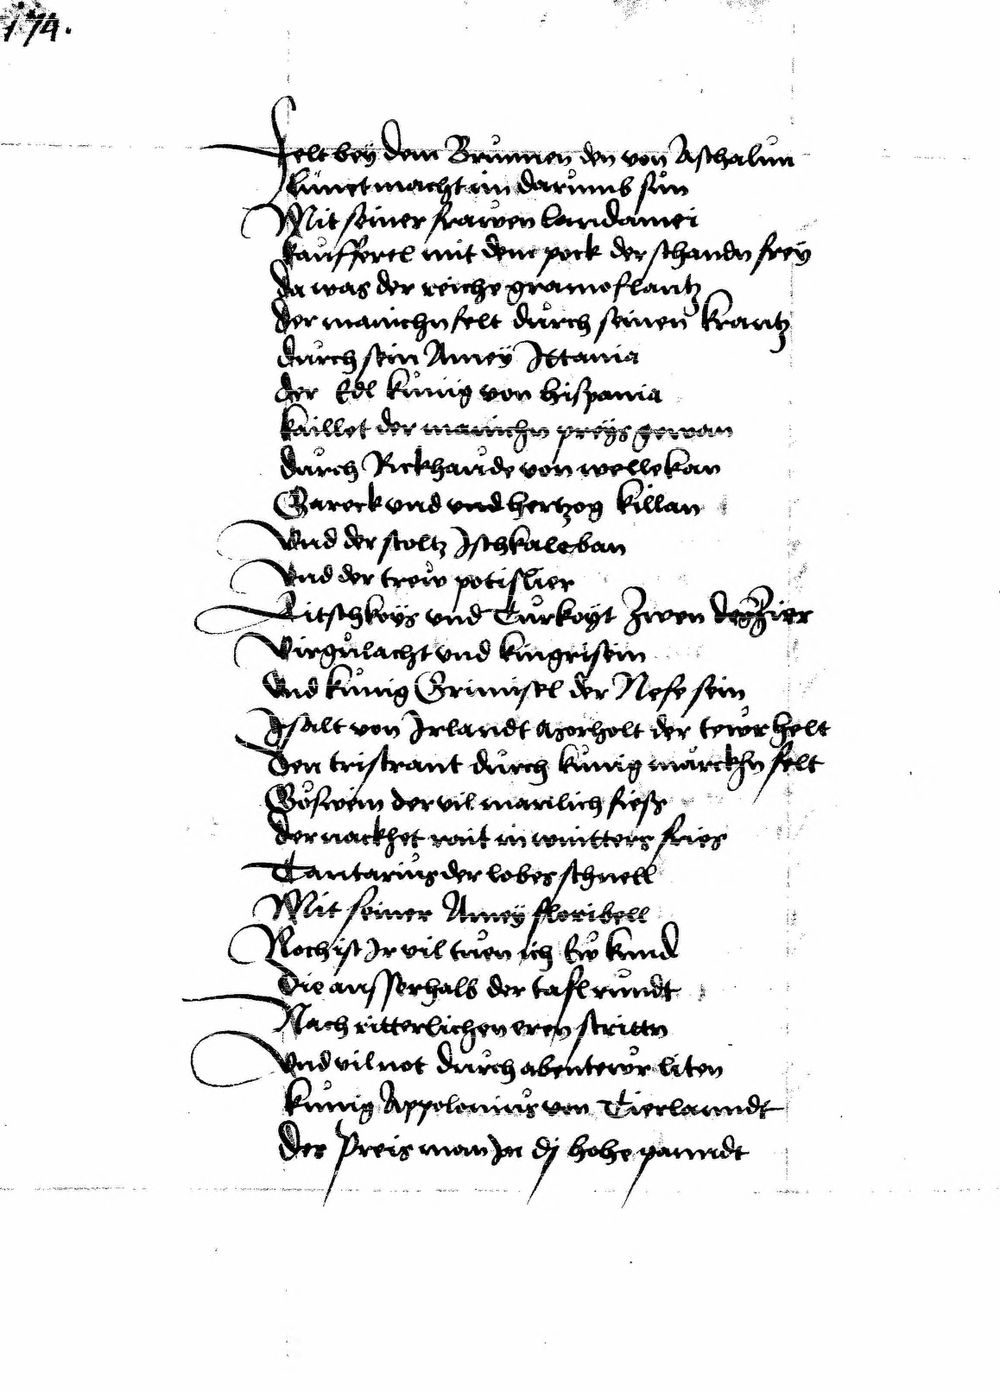 174.
Felt bey dem Brunnen den von Aschalun
kunet macht im darumb sün
Mit seiner frawen laudamei
kaufferel mit dem pock der schandn frey
da was der reiche gramoflantz
der manichn felt durch seinen krantz
durch sein Amey Ittania
der Edl kunig von hispania
kaillet der manichn preys gewan
durch Rickhaude von wellekan
Gareck vnd vnd hertzog killan
Vnd der stoltz Ischkaleban
Vnd der trew potislier
Litschkoys vnd Turkoyt zwen degen zier
Virgulacht vnd kingrisein
Vnd kunig Grimisel der Nefe sein
Isalt von Irlandt Morholt der tewr helt
Den tristrant durch kunig marckhn felt
Goswein der vil manlich fiess
der nackhet rait in winters fries
Tantarius der lobes schnell
Mit seiner Amey floribell
Noch ist Ir vil tuen ich Ew kund
Die ausserhalb der taflrundt
Nach ritterlichen eren strittn
Vnd vil not durch abentewr liten
kunig Appolonius von Tierlanndt
Des Preis man In dj hohe panndt